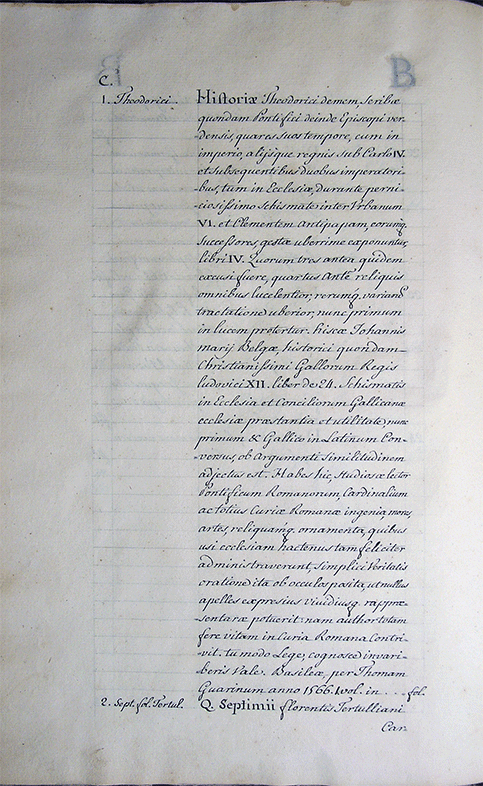 B
C.
1. Theodorici.
Historiæ Theodorici demem, scribæ
quondam Pontifici deinde Episcopi ver-
densis, qua res suos tempore, cum in
imperio, alijsque regnis sub Carlo IV.
et subsequentibus duobus imperatori-
bus, tum in Ecclesia, durante perni-
ciosissimo schismate inter Vrbanum
VI. et Clementem Antipapam, eorumq.
successores, gestæ uberrime exponuntur,
libri IV. Quorum tres antea quidem
excusi fuere, quartus Ante reliquis
omnibus luculentior, rerumq. variand
tractatione uberior, nunc primum
in lucem protertur. hisce Iohannis
marij Belgæ, historici quondam
Christianissimi Gallorum Regis
ludovici XII. liber de 24. Schismatis
in Ecclesia et Conciliorum Gallicanæ
ecclesiæ præstantia et utilitate, nunc
primum & Gallico in Latinum Con-
versus, ob Argumenti similitudinem
adjectus est. Habes hic, studiosæ lector
Pontificum Romanorum, Cardinalium
ac totius Curiæ Romanæ ingenia mores
artes, reliquamq. ornamenta, quibus
usi ecclesiam hactenus tam feliciter
administraverunt, simplici Veritatis
oratione ita ob occulos posita, ut nullus
apelles expresius vividiusq. rappræ-
sentaræ potuerit: nam author totam
fere vitam in Curia Romana Contri-
vit. tu modo Lege, cognosce in vari-
beris Vale. Basileæ, per Thomam
Guarinum anno 1566. 1. vol. in . . . fol.
2. Sept. fol. Tertul.
Q. Septimii florentis Tertulliani
Car.